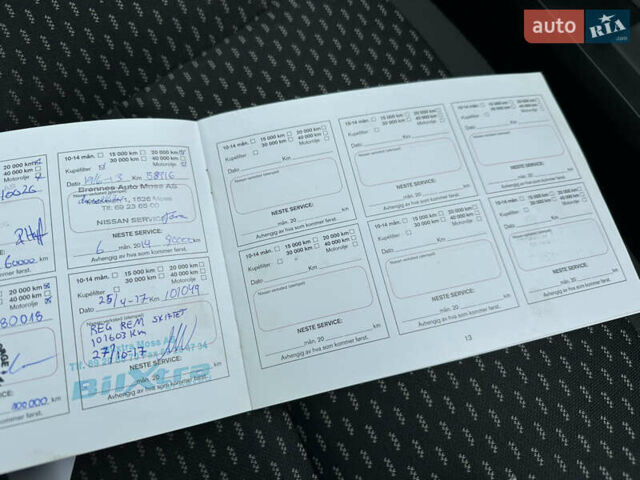 auto RIA.com
20 000 km
40 000 km
Motorolje
60000 km først.
20 000 km
40 000 km
Motorolje
80018
100000 km
først.
10-14 mån. 15 000 km 20 000 km
30 000 km 40 000 km
Kupéfilter Motorolje
Dato Km 58816
Brennes Auto Moss AS
1526 Moss
Tlf: 69 23 65 00
NISSAN SERVICE
NESTE SERVICE:
6 mån. 2014 90000 km
Avhengig av hva som kommer først.
10-14 mån. 15 000 km 20 000 km
30 000 km 40 000 km
Kupéfilter Motorolje
Dato 25/4-17 Km 101049
REG REM SKIFTET
101603 Km
27/10-17
Moss
BilXtra
NESTE SERVICE:
mån. 20 km
Avhengig av hva som kommer først.
10-14 mån. 15 000 km 20 000 km
30 000 km 40 000 km
Kupéfilter Motorolje
Dato Km
Nissan-verksted (stempel)
NESTE SERVICE:
mån. 20 km
Avhengig av hva som kommer først.
10-14 mån. 15 000 km 20 000 km
30 000 km 40 000 km
Kupéfilter Motorolje
Dato Km
Nissan-verksted (stempel)
NESTE SERVICE:
mån. 20 km
Avhengig av hva som kommer først.
10-14 mån. 15 000 km 20 000 km
30 000 km 40 000 km
Kupéfilter Motorolje
Dato Km
Nissan-verksted (stempel)
NESTE SERVICE:
mån. 20 km
Avhengig av hva som kommer først.
10-14 mån. 15 000 km 20 000 km
30 000 km 40 000 km
Kupéfilter Motorolje
Dato Km
Nissan-verksted (stempel)
NESTE SERVICE:
mån. 20 km
Avhengig av hva som kommer først.
10-14 mån. 15 000 km 20 000 km
30 000 km 40 000 km
Kupéfilter Motorolje
Dato Km
Nissan-verksted (stempel)
NESTE SERVICE:
mån. 20 km
Avhengig av hva som kommer først.
10-14 mån. 15 000 km 20 000 km
30 000 km 40 000 km
Kupéfilter Motorolje
Dato Km
Nissan-verksted (stempel)
NESTE SERVICE:
mån. 20 km
Avhengig av hva som kommer først.
13